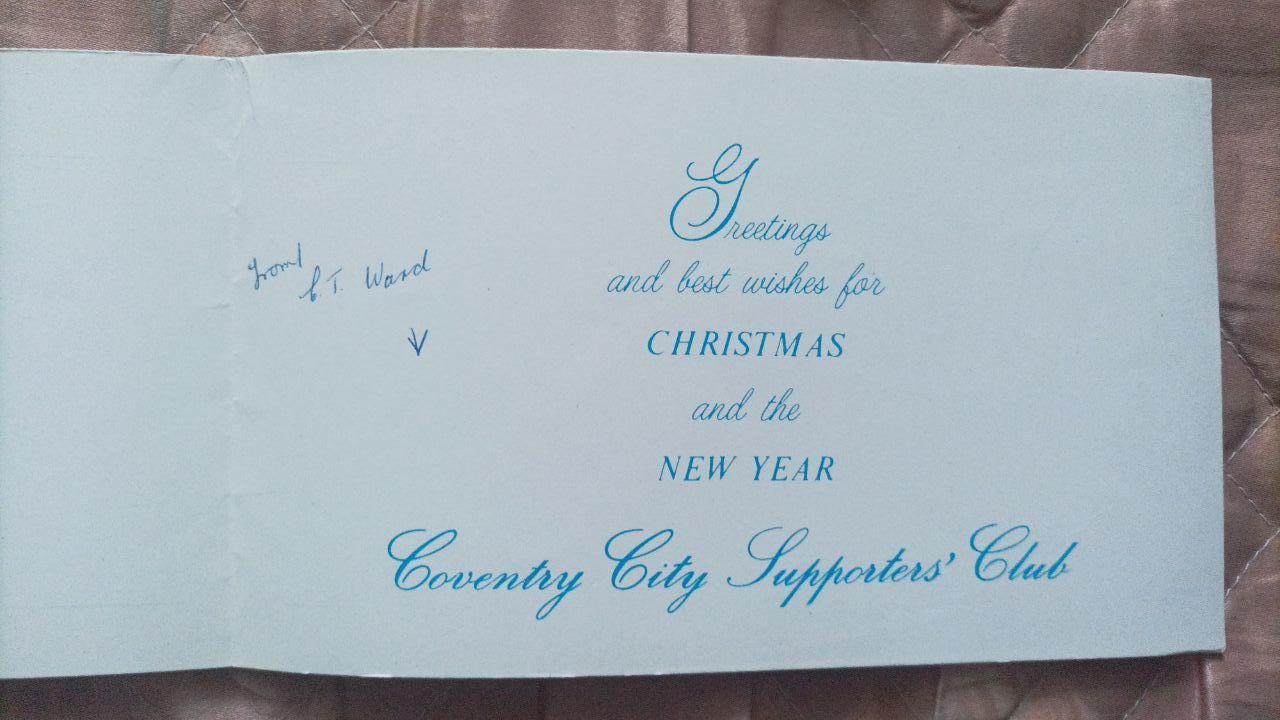 Greetings
and best wishes for
CHRISTMAS
and the
NEW YEAR
Coventry City Supporters' Club
from
T. Ward